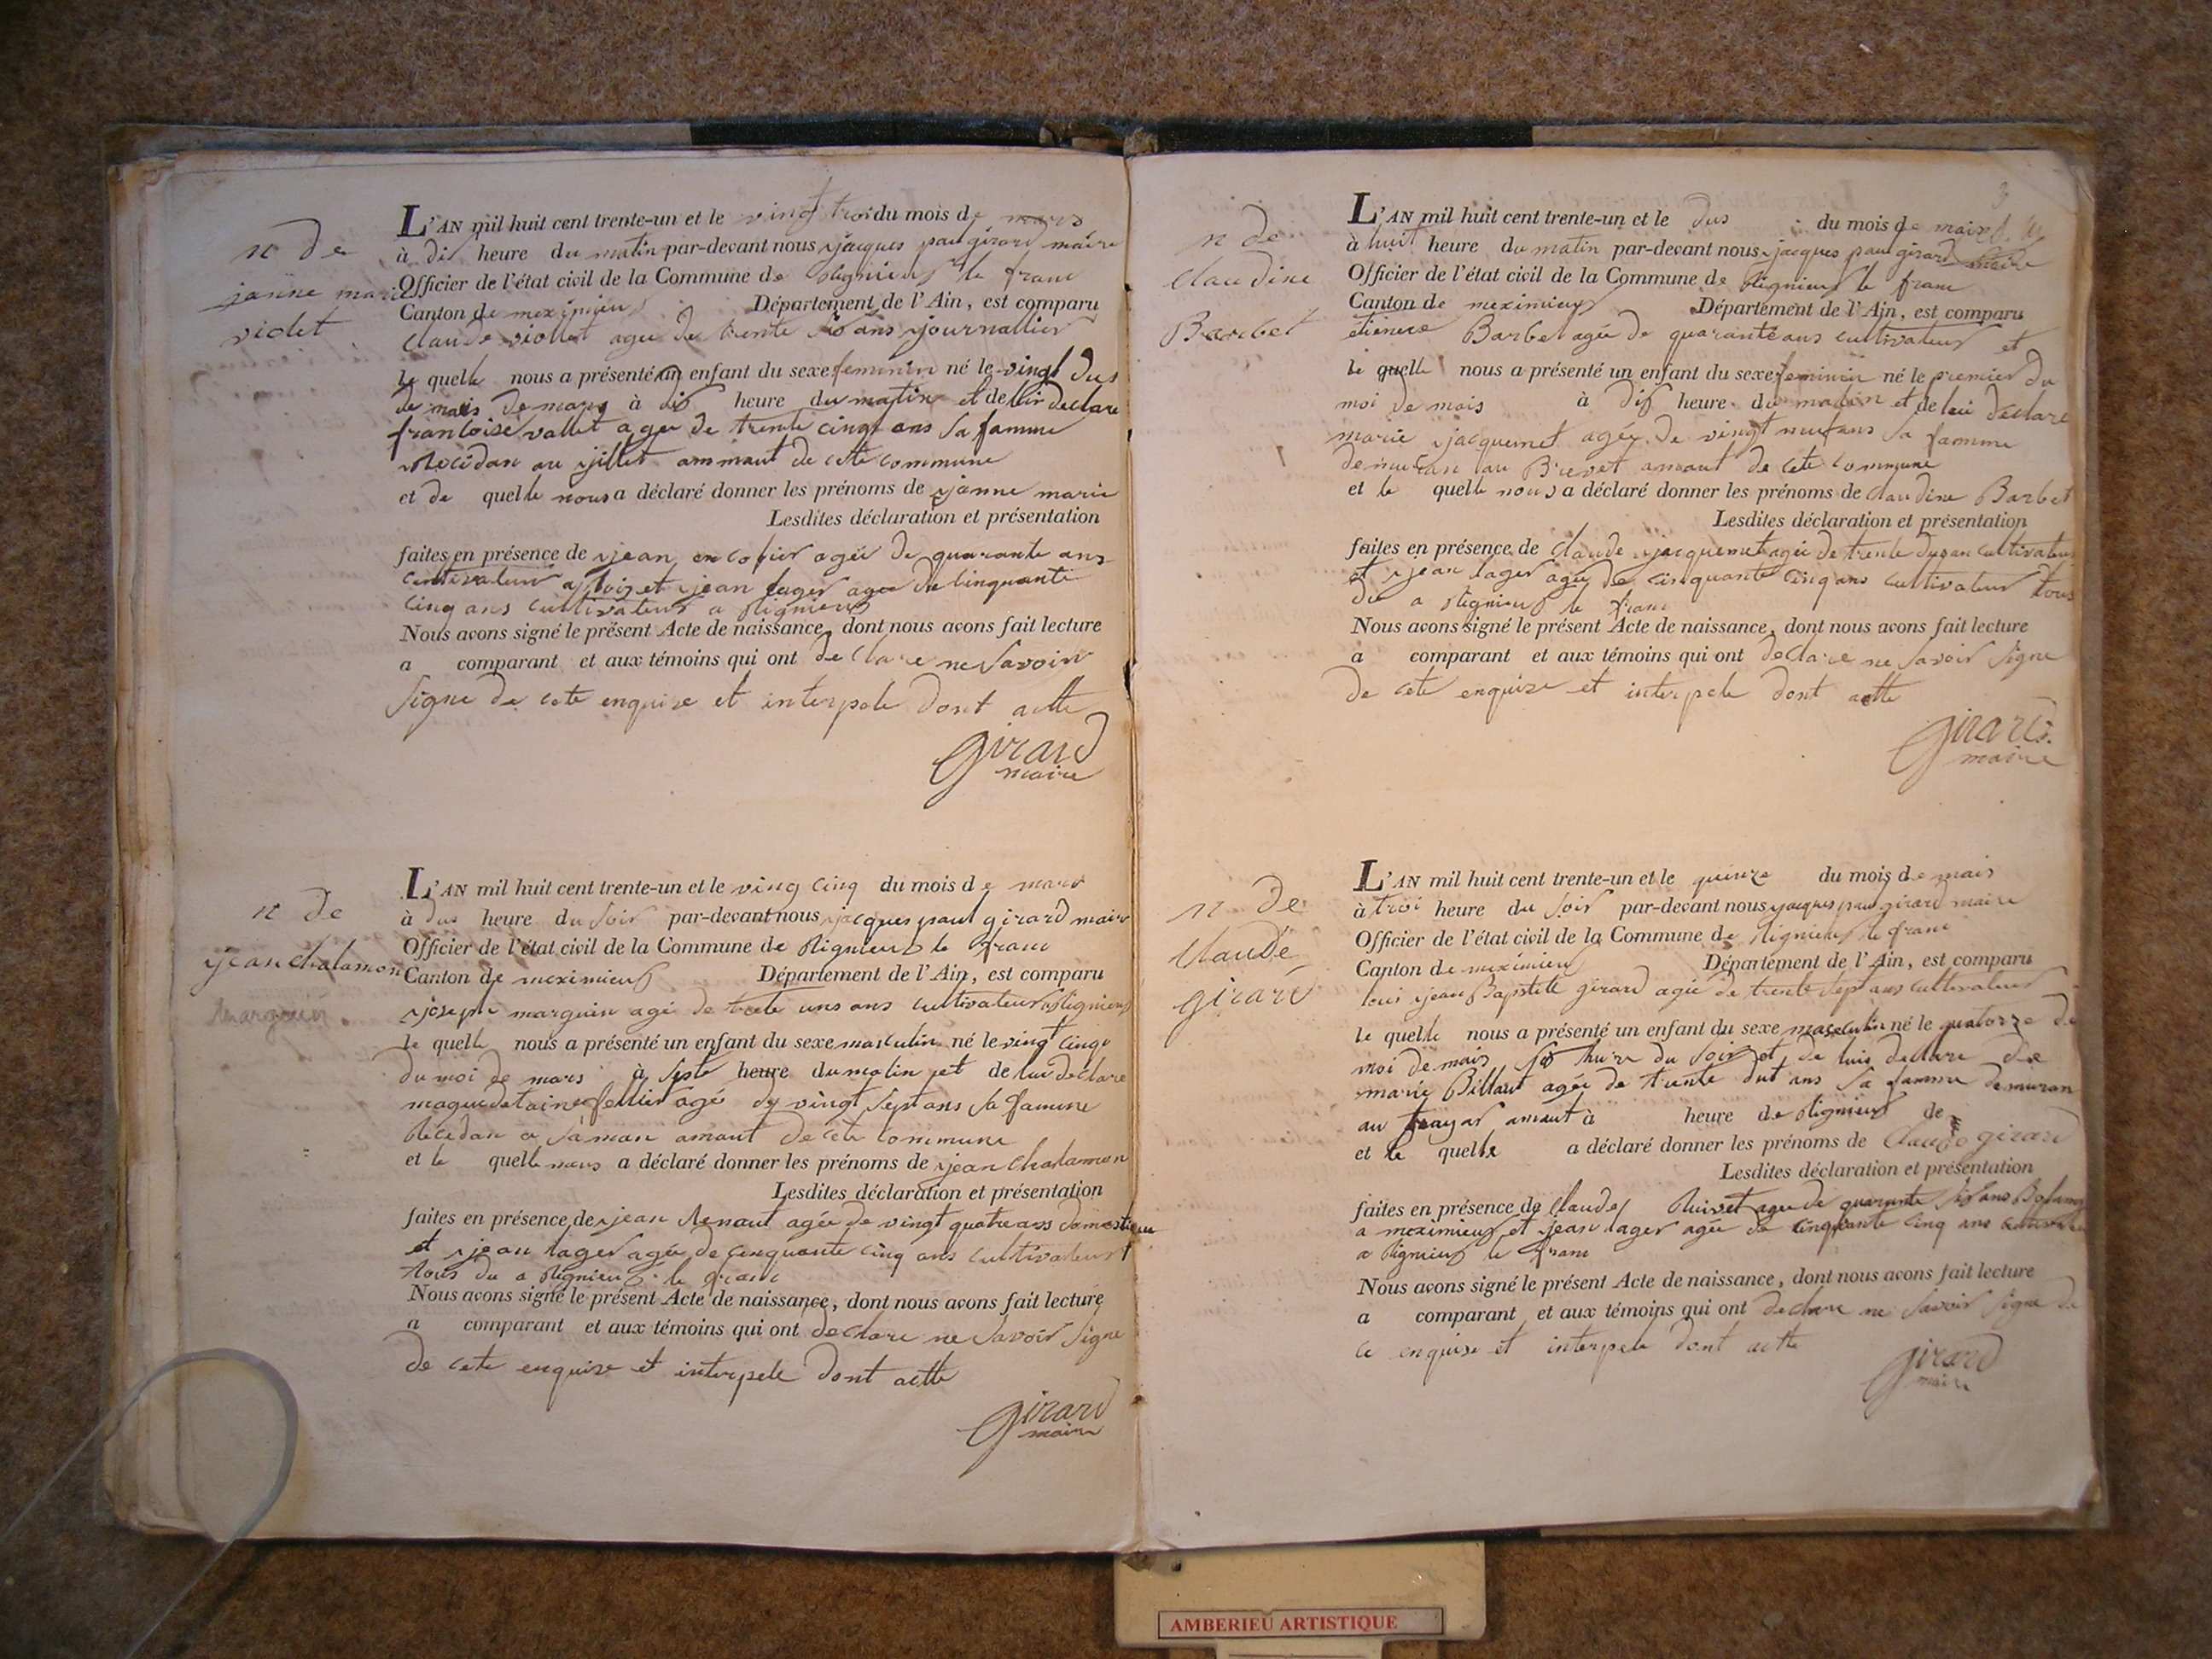 n de
janne marie
violet
L'AN mil huit cent trente-un et le vingt troi du mois de mars
à dix heure du matin par-devant nous jacques paul girard maire
Officier de l'état civil de la Commune de Rignieux le franc
Canton de meximieux Département de l'Ain, est comparu
claude viollet agee de trente ans journallier
le quelle nous a présenté un enfant du sexe feminin né le vingt dus
de mars de mars à dix heure du matin et de luir declare
francoise vallet agee de trente cinq ans sa famme
au jillet ammant de cete commune
et de quelle nous a déclaré donner les prénoms de janne marie
Lesdites déclaration et présentation
faites en présence de jean agée de quarante ans
et jean lager agee de cinquante
cinq ans cultivateur a Rignieux
Nous avons signé le présent Acte de naissance, dont nous avons fait lecture
a comparant et aux témoins qui ont declare ne savoir
signe de cete enquise et interpele dont actte
girard
maire
n de
jean chalamon
marguin
L'AN mil huit cent trente-un et le ving cinq du mois de mars
à dus heure du soir par-devant nous jacques paul girard maire
Officier de l'état civil de la Commune de Rignieux le franc
Canton de meximieux Département de l'Ain, est comparu
joseph marguin agé de trente uns ans cultivateur a Rignieux
le quelle nous a présenté un enfant du sexe masculin né le vingt cinqe
du moi de mars à sept heure du matin et de lui declare
fellier agé de vingt sept ans sa famme
amant de cete commune
et le quelle nous a déclaré donner les prénoms de jean chalamon
Lesdites déclaration et présentation
faites en présence de jean Renaut agée de vingt quatre ans domestique
et jean lager agée de cinquante cinq ans cultivateur
tous du a Rignieux le franc
Nous avons signé le présent Acte de naissance, dont nous avons fait lecture
a comparant et aux témoins qui ont declare ne savoir signe
de cete enquise et interpele dont actte
girard
maire
3
n de
claudine
Barbet
L'AN mil huit cent trente-un et le dus du mois de mai
à huit heure du matin par-devant nous jacques paul girard maire
Officier de l'état civil de la Commune de Rignieux le franc
Canton de meximieux Département de l'Ain, est comparu
etienne Barbet agée de quarante ans cultivateur et
le quelle nous a présenté un enfant du sexe feminin né le premier du
moi de mais à dix heure du matin et de lui declare
marie jacquemet agée de vingt neuf ans sa famme
demuran au Brevet amant de cete commune
et le quelle nous a déclaré donner les prénoms de claudine Barbet
Lesdites déclaration et présentation
faites en présence de claude jacquemet agée de trente dus an cultivateur
et jean lager agée de cinquante cinq ans cultivateur tous
du a Rignieux le franc
Nous avons signé le présent Acte de naissance, dont nous avons fait lecture
a comparant et aux témoins qui ont declare ne savoir signe
de cete enquise et interpele dont actte
girard
maire
n de
claude
girard
L'AN mil huit cent trente-un et le quinze du mois de mais
à troi heure du soir par-devant nous jacques paul girard maire
Officier de l'état civil de la Commune de Rignieux le franc
Canton de meximieux Département de l'Ain, est comparu
loui jean Baptiste girard agée de trente sept ans cultivateur
le quelle nous a présenté un enfant du sexe masculin né le quatorze de
moi de mais six hure du soir et de luis declare de
marie Billaut agée de trente ans sa famme demuran
au amant à heure de Rignieux de
et le quelle a déclaré donner les prénoms de claude girard
Lesdites déclaration et présentation
faites en présence de claude Ruivet agee de quarante six ans
a meximieux et jean lager agée de cinquante cinq ans
a Rignieux le franc
Nous avons signé le présent Acte de naissance, dont nous avons fait lecture
a comparant et aux témoins qui ont declare ne savoir signe de
ce enquise et interpele dont actte
girard
maire
AMBERIEU ARTISTIQUE